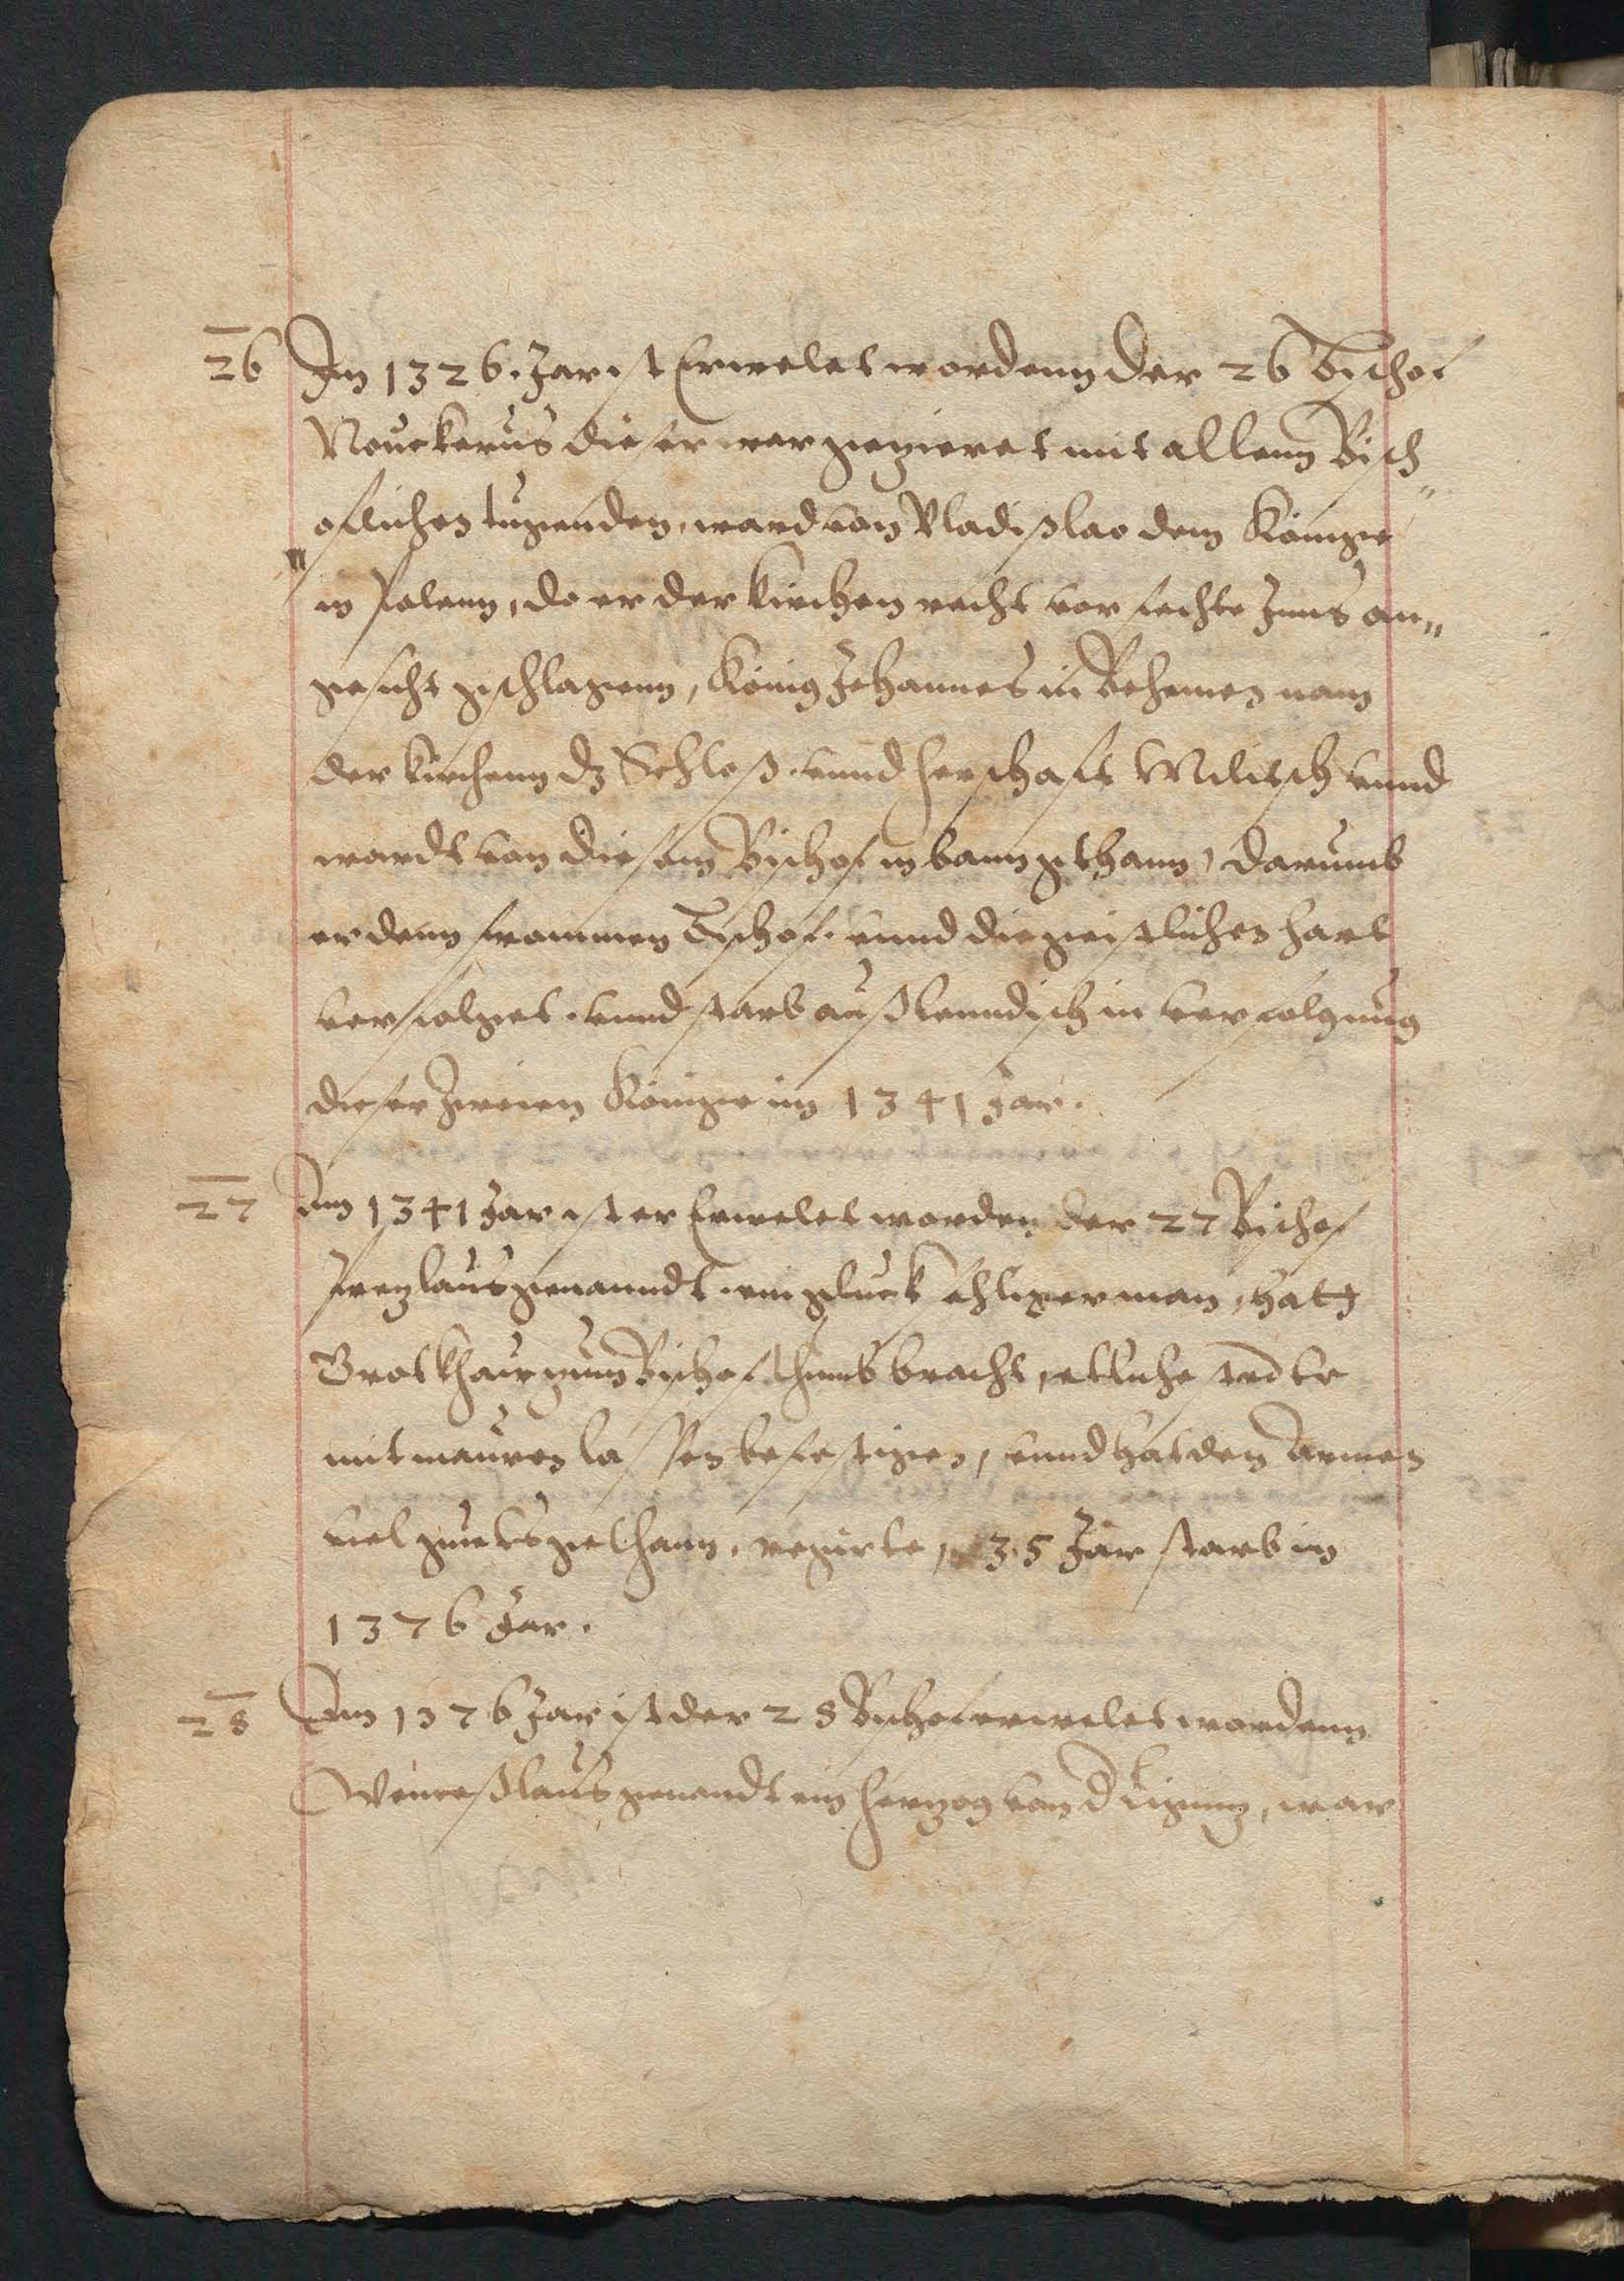 26 Im 1326. Jar ist Erwelet wordenn der 26 Bischof
Nouckerus dieser war gezieret mit allenn Bisch„
oflichen tugenden, ward von Vladißlao dem Könige
in Polenn, do er der kirchen recht vorfechte Inns an„
gesicht geschlagenn, König Johannes in Behemen nam
der kirchenn dz Schloß vnnd herschaft Militsch vnnd
wardt von diesem Bischof in bann gethann, darumb
er denn frommen Bischof vnnd die geistlichen hart
verfolget. vnnd starb außlenndisch in verfolgung
dieser zweien Könige im 1341 Jar.
27 Am 1341 Jar ist er Erwelet worden der 27 Bischof
genanndt. ein gluckschliger man, hatt
Grotkhaw zum Bischofthumb bracht, etliche stedte
mit mauren lassen befestigen, vnnd hat den Armen
viel guets gethann. regirte, 35 Jar starb im
1376 Jar.
28 Am 1376 Jar ist der 28 Bischof erwelet wordenn
Wenceßlaus genandt ein herzog vonn Lignitz, war